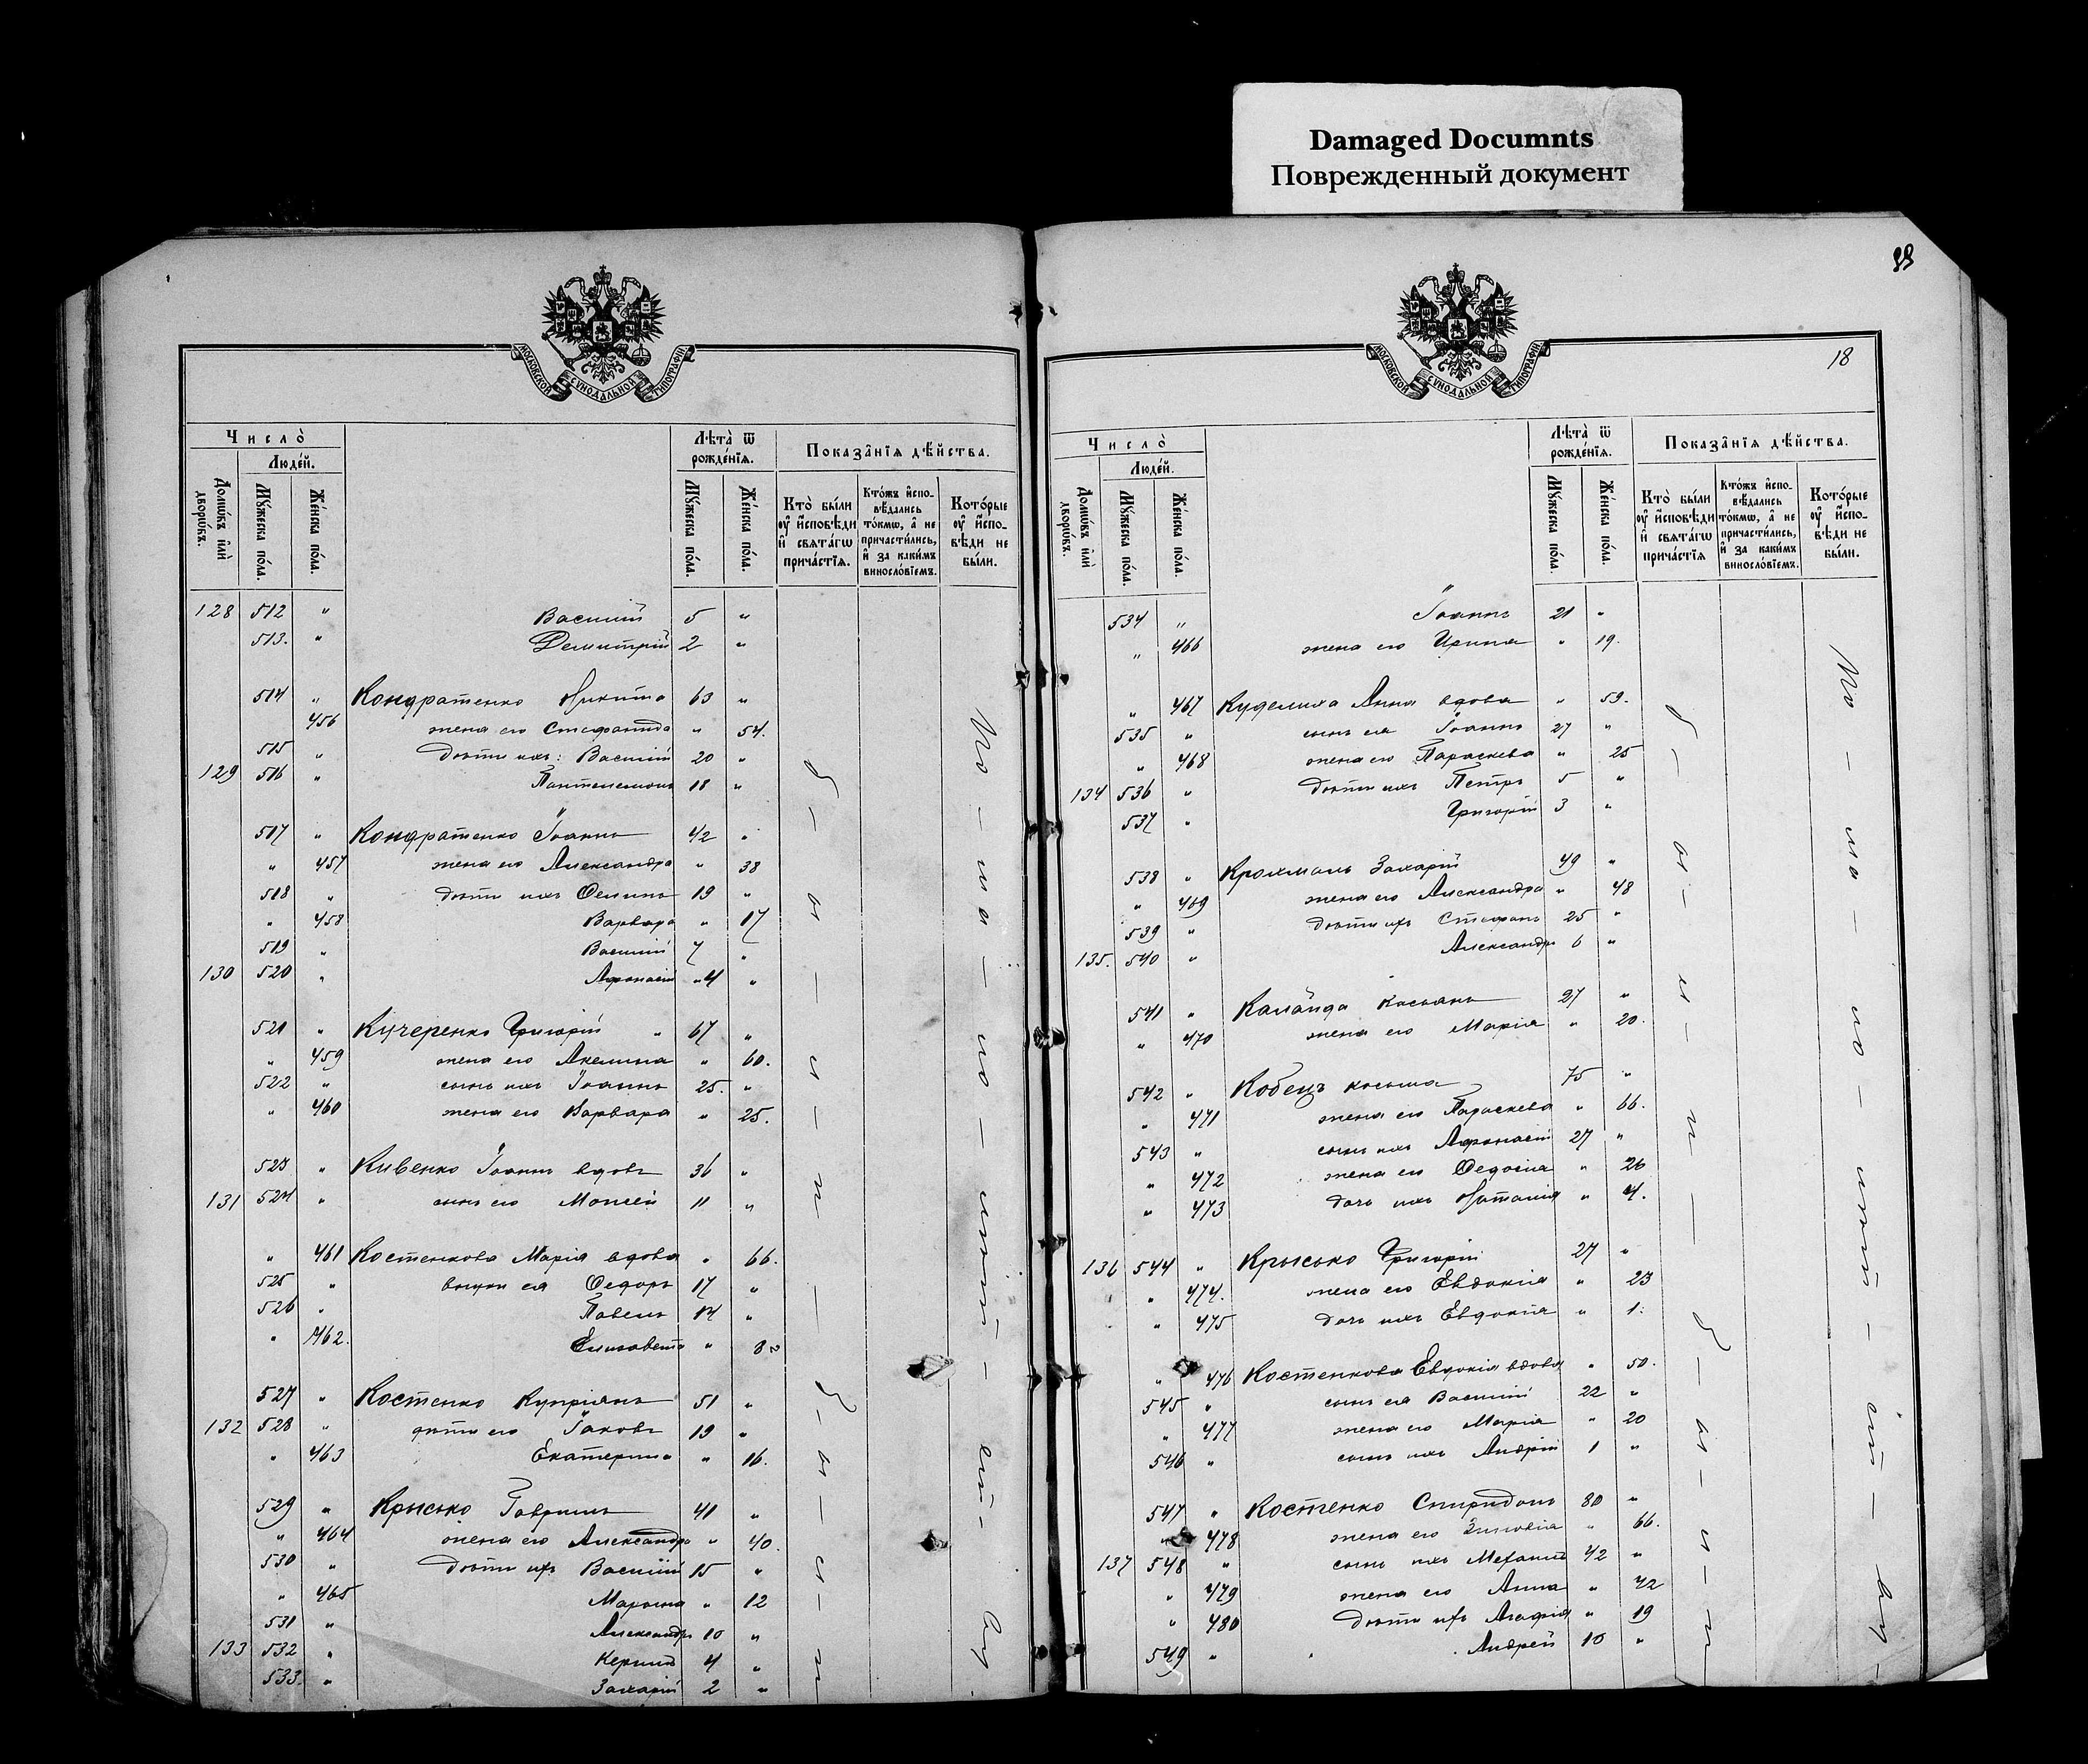 Damaged Documnts
Поврежденный документ
МОСКОВСКОЙ СУНОДАЛЬНОЙ ТИПОГРАФІИ
Число̀
Людей.
Домѡвъ и҆лѝ дворѡвъ.
Мꙋжеска по́ла.
Же́нска по́ла.
Лѣта̀ ѿ рожде́нїѧ.
Мꙋжеска по́ла.
Же́нска по́ла.
Показа̑нїѧ дѣ́йства.
Кто̀ бы́ли оу҆ и҆сповѣди и҆ свѧта́гѡ прича́стїѧ.
Кто́жъ и҆спо-вѣдались то́кмѡ, а҆ не причасти́лись, и҆ за каки́мъ винословіемъ.
Кото́рые оу҆ и҆спо-вѣди не бы́ли.
128 512 " Василій 5 "
513. " Димитрій 2 "
514 " Кондратенко Никита 63 "
456 жена его Стефанида " 54.
515 " дѣти ихъ: Василій 20 "
129 516 " Пантелеимонъ 18 "
517 " Кондратенко Іоаннъ 42 "
" 457 жена его Александра " 38
518 " дѣти ихъ 19 "
" 458 Варвара " 17
519 " Василій 7 "
130 520 " Афанасій 4 "
521 " Кучеренко Григорій " 67 "
" 459 жена его Акилина " 60.
522 " сынъ ихъ Іоаннъ 25. "
" 460 жена его Варвара " 25.
523 " Кивенко Іоаннъ вдовъ 36 "
131 524 " сынъ его Моисей 11 "
" 461 Костенкова Марія вдова " 66.
525 " внуки ея Ѳедоръ 17 "
526 " Павелъ 14 "
" 462. Елизавета " 8
527 " Костенко Купріянъ 51 "
132 528 " дѣти его Іаковъ 19 "
" 463 Екатерина " 16.
529 " Крысько Гавріилъ 41 "
" 464 жена его Александра " 40.
530 " дѣти ихъ Василій 15 "
" 465 " 12
531 " Александръ 10 "
133 532 " 4 "
533. " Захарій 2 "
18
МОСКОВСКОЙ СУНОДАЛЬНОЙ ТИПОГРАФІИ
Число̀
Людей.
Домѡвъ и҆лѝ дворѡвъ.
Мꙋжеска по́ла.
Же́нска по́ла.
Лѣта̀ ѿ рожде́нїѧ.
Мꙋжеска по́ла.
Же́нска по́ла.
Показа̑нїѧ дѣ́йства.
Кто̀ бы́ли оу҆ и҆сповѣди и҆ свѧта́гѡ прича́стїѧ
Кто́жъ и҆спо-вѣдались то́кмѡ, а҆ не причасти́лись, и҆ за каки́мъ винословіемъ.
Кото́рые оу҆ и҆спо-вѣди не бы́ли.
534 " Іоаннъ 21 "
" 466 жена его Ирина " 19.
" 467 Куделиха Анна вдова " 59.
535 " сынъ ея Іоаннъ 27 "
" 468 жена его Параскева " 25
134 536 " дѣти ихъ Петръ 5 "
537 " Григорій 3 "
538 " Крохмаль Захарій 49 "
" 469 жена его Александра " 48
539 " дѣти ихъ Стефанъ 25 "
135. 540 " Александръ 6 "
541 " Каланда Касьянъ 27 "
" 470 жена его Марія " 20.
542 " Кобецъ Косьма 75 "
" 471 жена его Параскева " 66.
543 " сынъ ихъ Афанасій 27 "
" 472 жена его Ѳедосія " 26
" 473 дочь ихъ Наталія " 4.
136 544 " Крысько Григорій 27 "
" 474. жена его Евдокія " 23
" 475 дочь ихъ Евдокія " 1.
" 476 Костенкова Евдокія вдова " 50.
545 " сынъ ея Василій 22 "
" 477 жена его Марія " 20
546 " сынъ ихъ Андрій 1 "
547 " Костенко Спиридонъ 80 "
" 478 жена его Зиновія " 66.
137 548 " сынъ ихъ 42 "
" 479 жена его Анна " 42
" 480 дѣти ихъ Агафія " 19
549 " Андрей 10 "